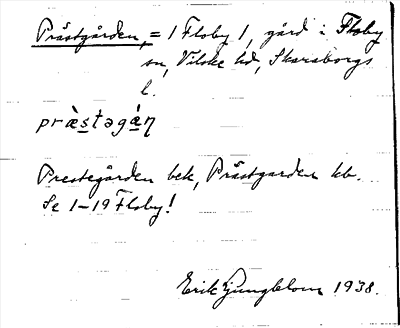 Prästgården, = 1 Floby 1, gård i Floby
sn, Vilske hd, Skaraborgs
l.
præ̀stəgá̀ɳ
Prestegården bek, Prästgarden kb.
Se 1–19 Floby!
Erik Ljungblom 1938.